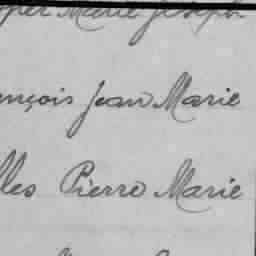 Marie Joseph
ençois Jean Marie
lles Pierre Marie